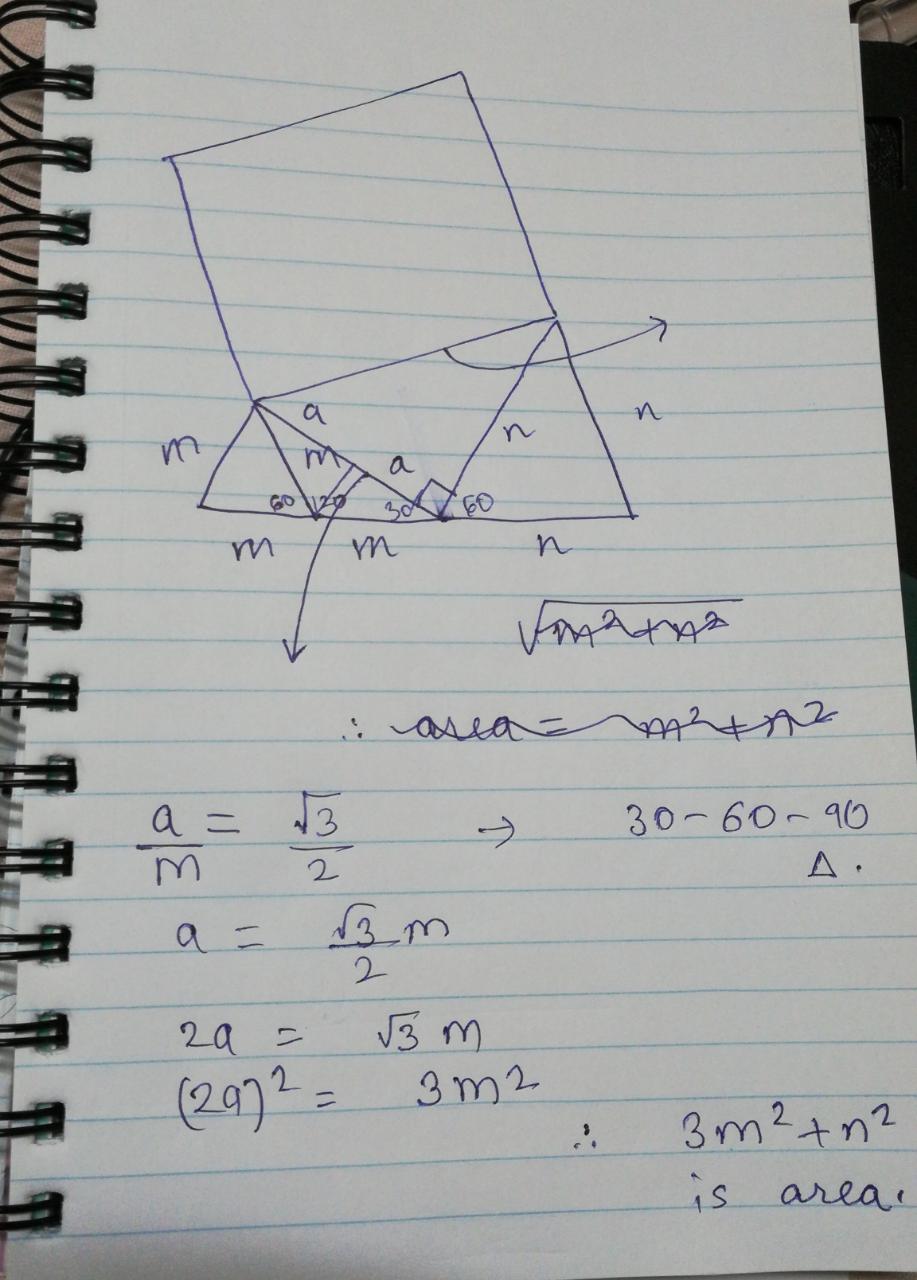 a
m
n
m
a
n
60
120
30
60
m
m
n
√m²+n²
∴ area = m²+n²
a/m = √3/2 → 30-60-90
Δ.
a = √3/2 m
2a = √3 m
(2a)² = 3m²
∴ 3m²+n²
is area.